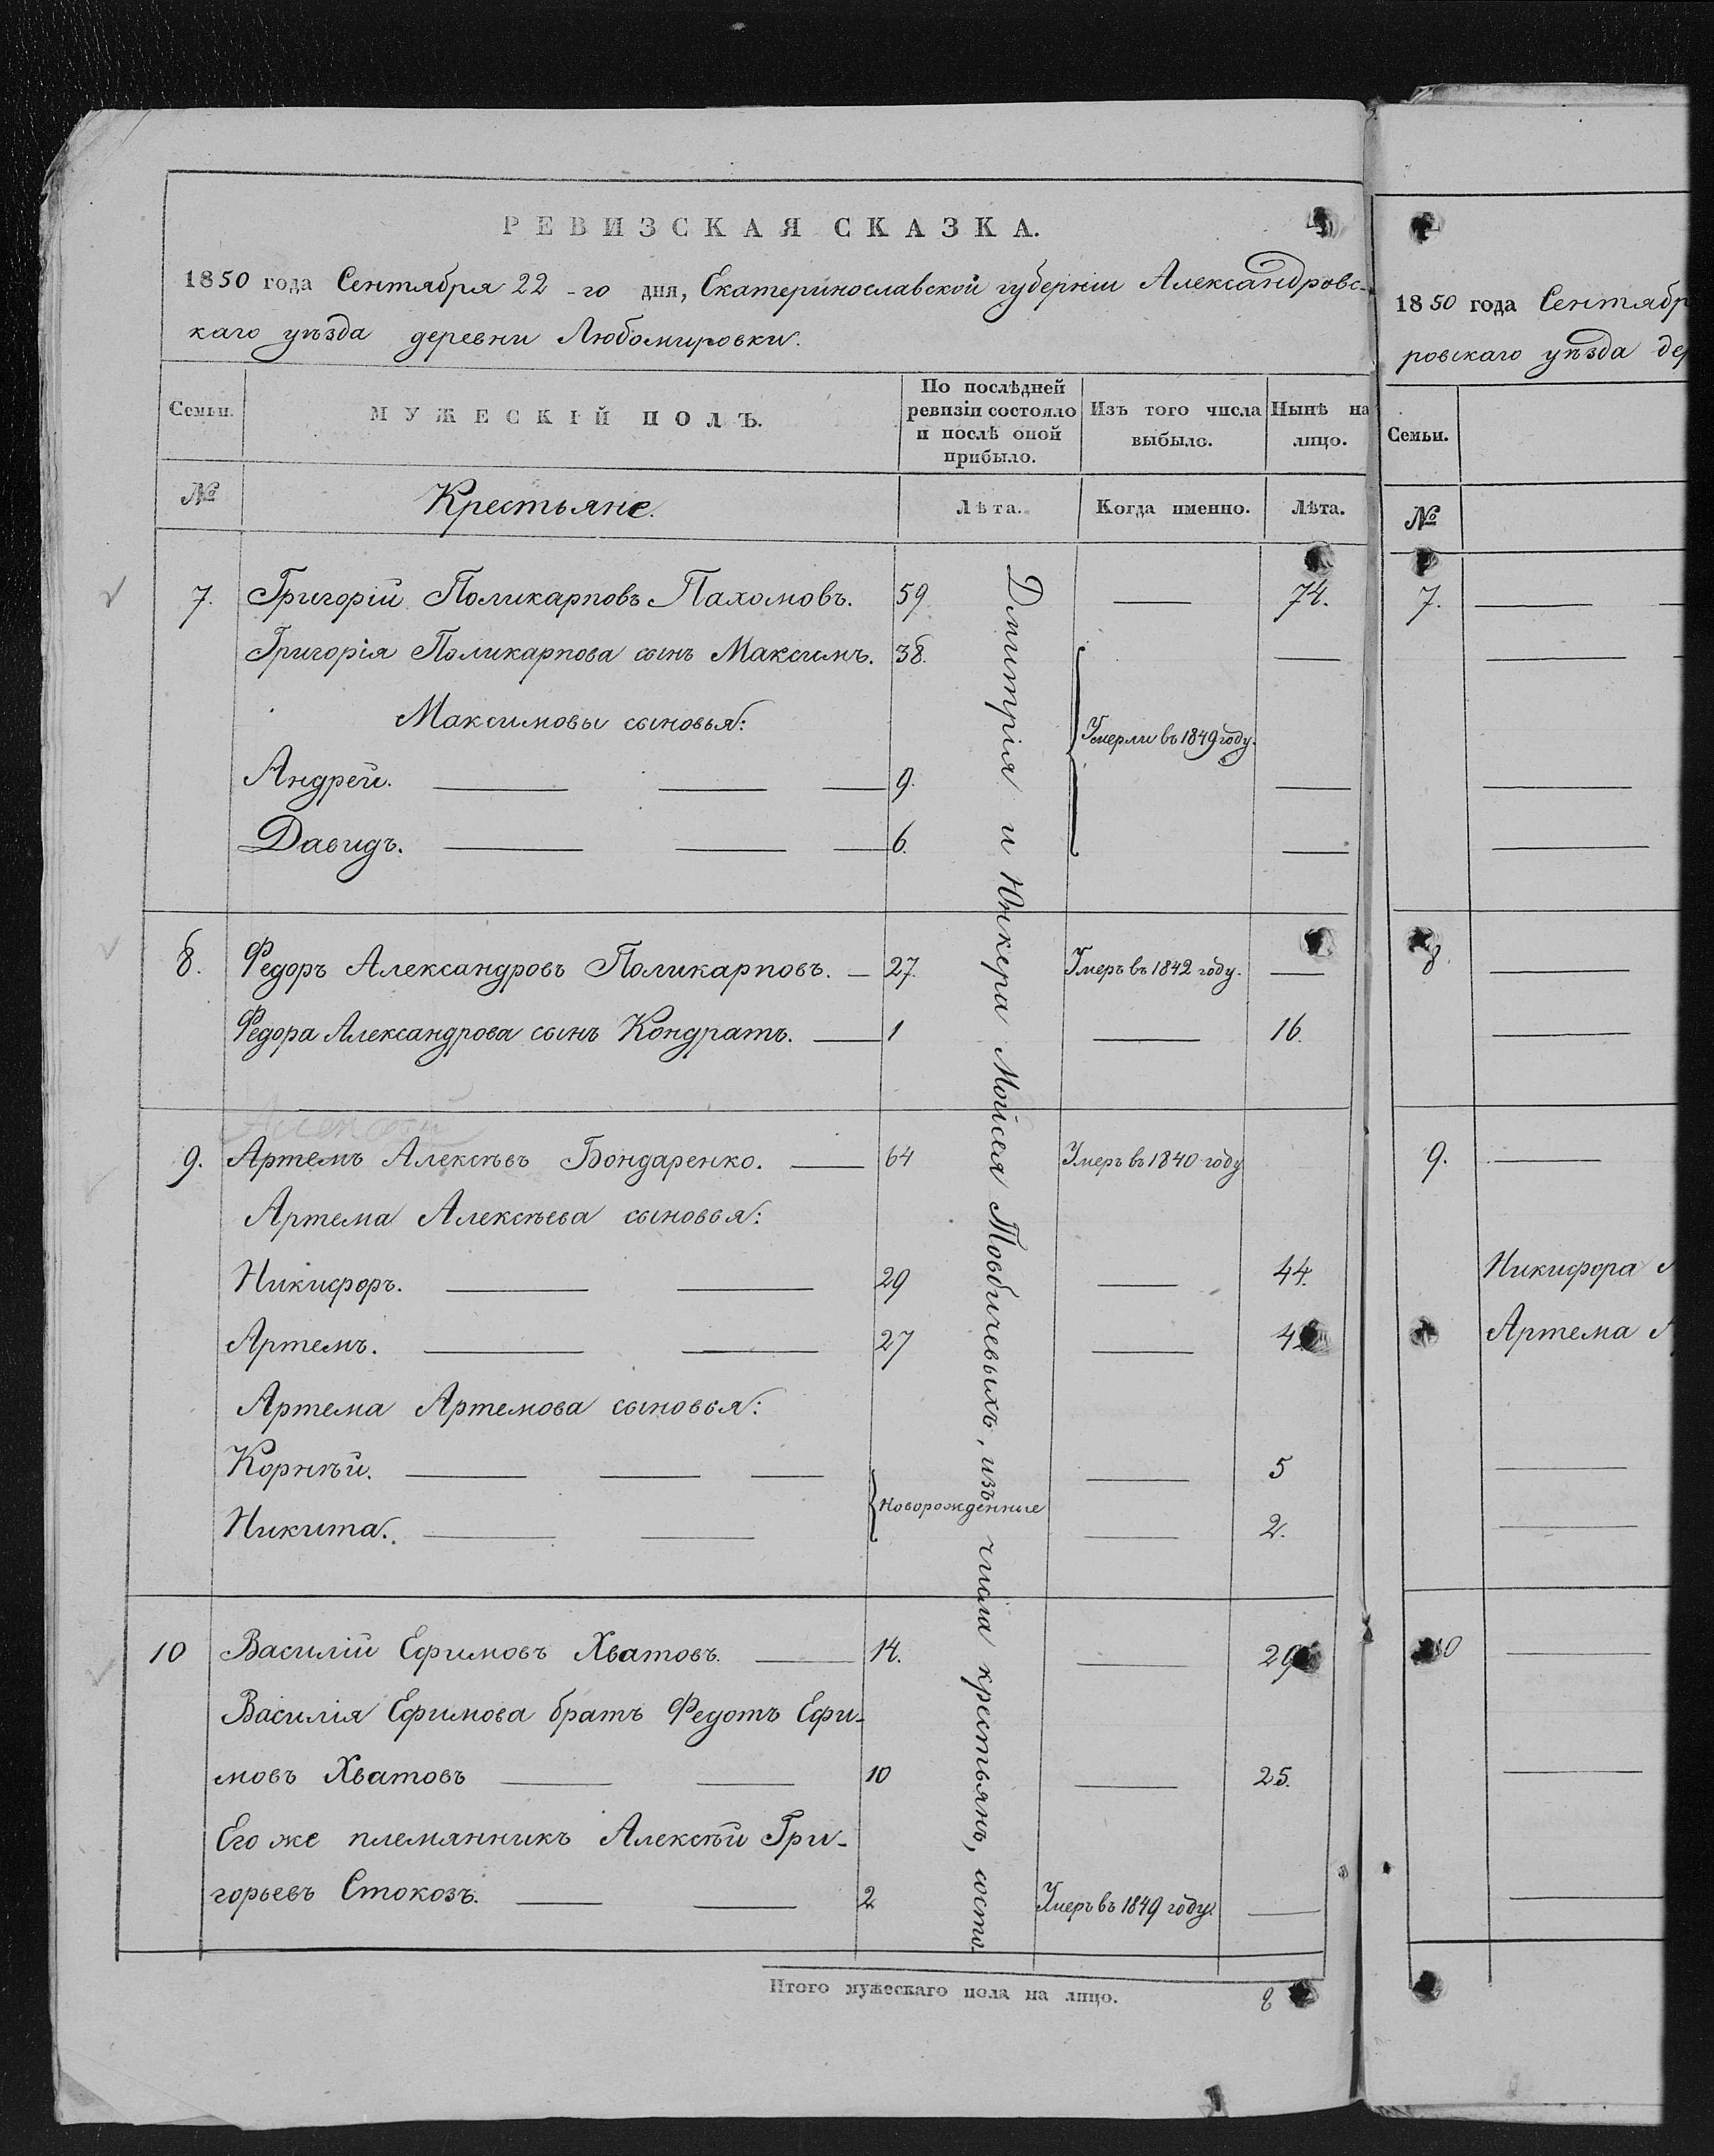 РЕВИЗСКАЯ СКАЗКА.
1850 года Сентября 22-го дня, Екатеринославской губерніи Александровс-
каго уѣзда деревни Любомировки.
Семьи. МУЖЕСКІЙ ПОЛЪ. По послѣдней ревизіи состояло и послѣ оной прибыло. Изъ того числа выбыло. Нынѣ на лицо.
№ Крестьяне. Лѣта. Когда именно. Лѣта.
7. Григорій Поликарповъ Пахомовъ. 59 — 74.
Григорія Поликарпова сынъ Максимъ. 38. —
Максимовы сыновья:
Умерли въ 1849 году.
Андрей. — 9. —
Давидъ. — 6. —
8. Федоръ Александровъ Поликарповъ. — 27. Умеръ въ 1842 году. —
Федора Александрова сынъ Кондратъ. — 1 — 16.
Алексѣй
9. Артемъ Алексѣевъ Бондаренко. — 64 Умеръ въ 1840 году
Артема Алексѣева сыновья:
Никифоръ. — 29 — 44.
Артемъ. — 27 — 4
Артема Артемова сыновья:
Корнѣй. — — 5
Новорожденные
Никита. — — 2.
10 Василій Ефимовъ Хватовъ. — 14. — 29
Василія Ефимова братъ Федотъ Ефи-
мовъ Хватовъ — 10 — 25.
Его же племянникъ Алексѣй Гри-
горьевъ Стокозъ. — 2 Умеръ въ 1849 году. —
Итого мужескаго пола на лицо. 8
Дмитрія и Юнкера Мойсея Товбичевыхъ, изъ числа крестьянъ, состо-
1850 года Сентябр
ровскаго уѣзда де
Семьи.
№
7. —
—
—
—
8. —
—
9. —
Никифора
Артема
—
—
10 —
—
—